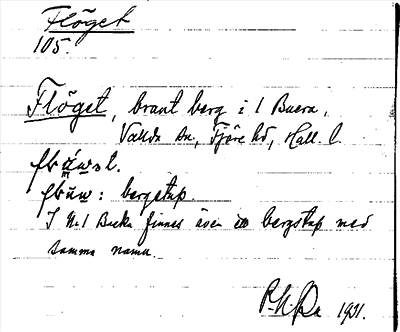 Flöget
105.
Flöget, brant berg i 1 Buera,
Vallda sn, Fjäre hd, Hall. l.
: bergstup.
I N:1 Backa finnes även ett bergstup med
samma namn.
1931.